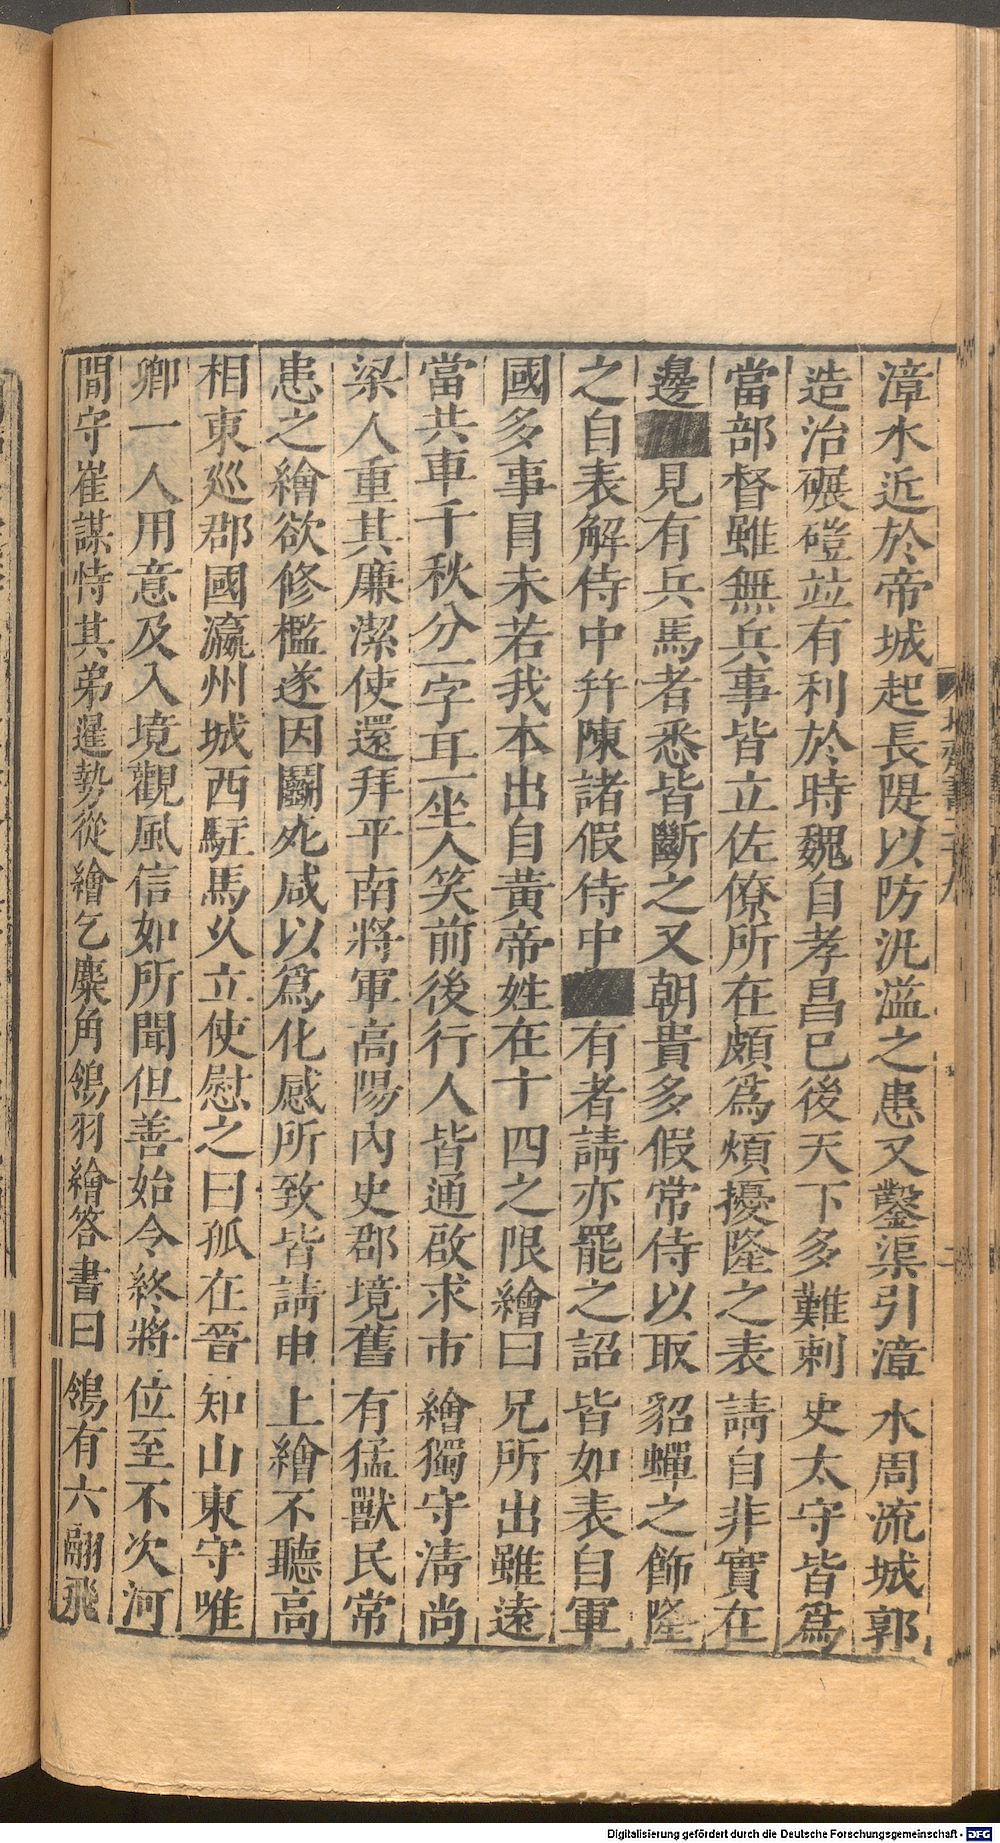 漳水近於帝城起長隄以防汎溢之患又鑿渠引漳水周流城郭
造治碾磑並有利於時魏自孝昌已後天下多難刺史太守皆為
當部督雖無兵事皆立佐僚所在頗為煩擾隆之表請自非實在
邊見有兵馬者悉皆斷之又朝貴多假常侍以取貂蟬之飾隆
之自表解侍中幷陳諸假侍中有者請亦罷之詔皆如表自軍
國多事冒未若我本出自黃帝姓在十四之限繪曰兄所出雖遠
當共車千秋分一字耳一坐大笑前後行人皆通啟求市繪獨守清尚
梁人重其廉潔使還拜平南將軍高陽內史郡境舊有猛獸民常
患之繪欲修檻遂因鬬死咸以為化感所致皆請申上繪不聽高
相東巡郡國瀛州城西駐馬久立使慰之曰孤在晉知山東守唯
卿一人用意及入境觀風信如所聞但善始令終將位至不次河
間守崔謀恃其弟暹勢從繪乞麋角鴒羽繪答書曰鴒有六翮飛
北齊書二十九
二
Digitalisierung gefördert durch die Deutsche Forschungsgemeinschaft - DFG